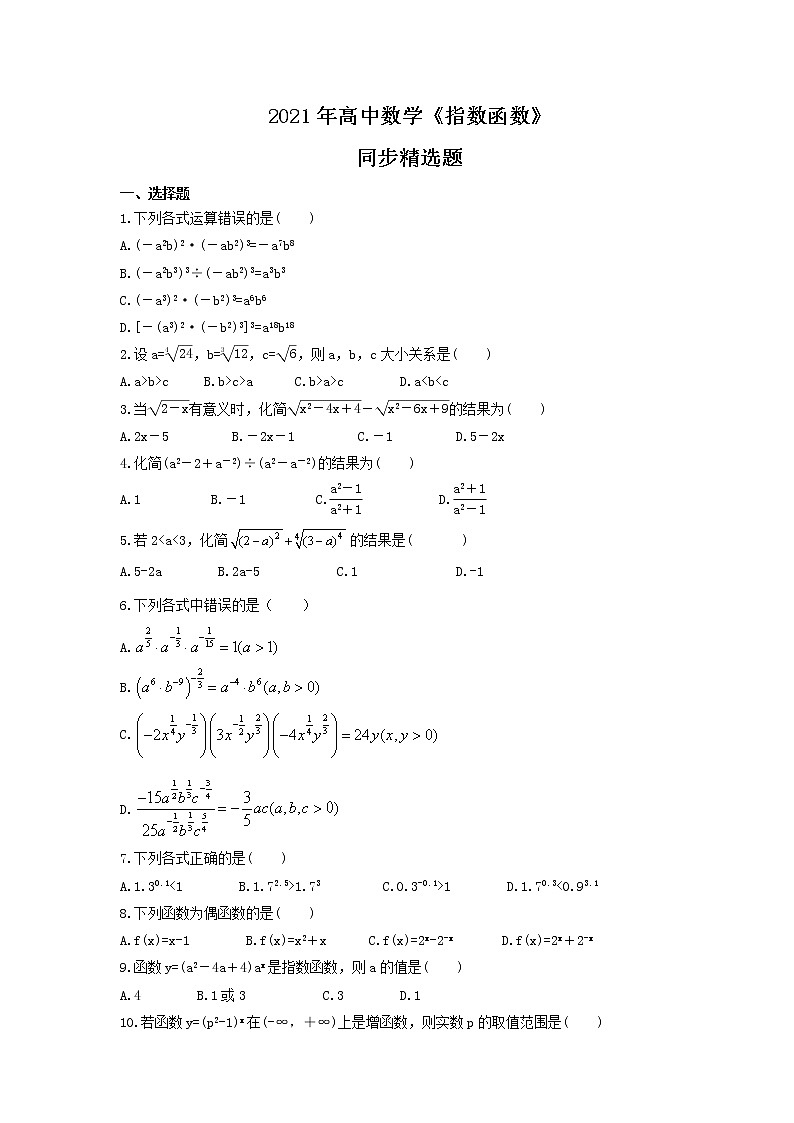 2021 年高中数学《指数函数》
同步精选题
一、选择题
1.下列各式运算错误的是(　　)
A.(－a²b)²·(－ab²)³=－a⁷b⁸
B.(－a²b³)³÷(－ab²)³=a³b³
C.(－a³)²·(－b²)³=a⁶b⁶
D.[－(a³)²·(－b²)³]³=a¹⁸b¹⁸
2.设 a=⁴√24,b=³√12,c=√6,则 a,b,c 大小关系是(　　)
A.a>b>c B.b>c>a C.b>a>c D.a<b<c
3.当√(2－x)有意义时,化简√(x²－4x＋4)－√(x²－6x＋9)的结果为(　　)
A.2x－5 B.－2x－1 C.－1 D.5－2x
4.化简(a²－2＋a⁻²)÷(a²－a⁻²)的结果为(　　)
A.1 B.－1 C.(a²－1)/(a²＋1) D.(a²＋1)/(a²－1)
5.若 2<a<3,化简 √(2－a)² + ⁴√(3－a)⁴ 的结果是(　　)
A.5-2a B.2a-5 C.1 D.-1
6.下列各式中错误的是（　　）
A. a^(2/5)·a^(-1/3)·a^(-1/15) = 1(a > 1)
B. (a⁶·b⁻⁹)^(-2/3) = a⁻⁴·b⁶(a, b > 0)
C. (-2x^(1/4)y^(-1/3))(3x^(-1/2)y^(2/3))(-4x^(1/4)y^(2/3)) = 24y(x, y > 0)
D. (-15a^(1/2)b^(1/3)c^(-3/4))/(25a^(-1/2)b^(1/3)c^(5/4)) = -3/5 ac(a, b, c > 0)
7.下列各式正确的是(　　)
A.1.3⁰·¹<1 B.1.7²·⁵>1.7³ C.0.3⁻⁰·¹>1 D.1.7⁰·³<0.9³·¹
8.下列函数为偶函数的是(　　)
A.f(x)=x-1 B.f(x)=x²＋x C.f(x)=2ˣ-2⁻ˣ D.f(x)=2ˣ＋2⁻ˣ
9.函数 y=(a²－4a＋4)aˣ 是指数函数,则 a 的值是(　　)
A.4 B.1 或 3 C.3 D.1
10.若函数 y=(p²-1)ˣ 在(-∞,＋∞)上是增函数,则实数 p 的取值范围是(　　)